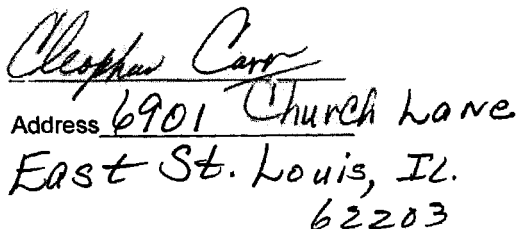 Cleophus Carr
Address 6901 Church Lane
East St. Louis, IL.
62203